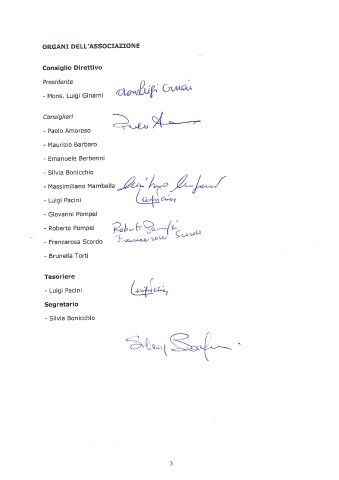 ORGANI DELL'ASSOCIAZIONE
Consiglio Direttivo
Presidente
- Mons. Luigi Ginami
Consiglieri
- Paolo Amoroso
- Maurizio Barbaro
- Emanuele Berbenni
- Silvia Bonicchio
- Massimiliano Mambella
- Luigi Pacini
- Giovanni Pompei
- Roberto Pompei Roberto
- Francarosa Scordo Francarosa Scordo
- Brunella Torti
Tesoriere
- Luigi Pacini
Segretario
- Silvia Bonicchio
3